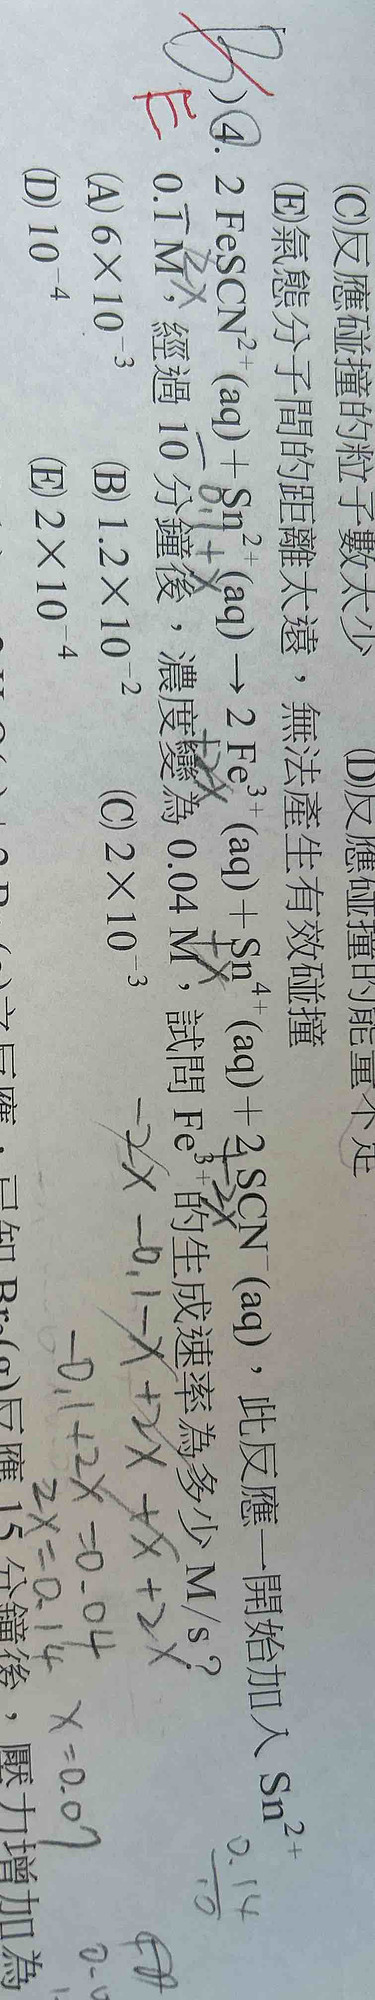 (C)反應碰撞的粒子數太少 (D)反應碰撞的能量不足
(E)氣態分子間的距離太遠，無法產生有效碰撞
B
E
)4. 2 FeSCN²⁺(aq)＋Sn²⁺(aq)→2 Fe³⁺(aq)＋Sn⁴⁺(aq)＋2 SCN⁻(aq)，此反應一開始加入 Sn²⁺
-2x -0.1+x +2x +x +2x
0.1 M，經過 10 分鐘後，濃度變為 0.04 M，試問 Fe³⁺的生成速率為多少 M/s？
(A) 6×10⁻³ (B) 1.2×10⁻² (C) 2×10⁻³
(D) 10⁻⁴ (E) 2×10⁻⁴
-2x -0.1-x +2x +x +2x
-0.1+2x=0.04
2x=0.14 x=0.07
0.14
10
(g)之反應，已知 Br₂(g)反應 15 分鐘後，壓力增加為